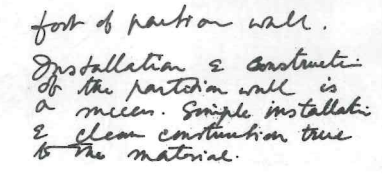 foot of partion wall.
Installation & constructi
of the partition wall is
a success. Simple installati
& clean construction true
to the material.